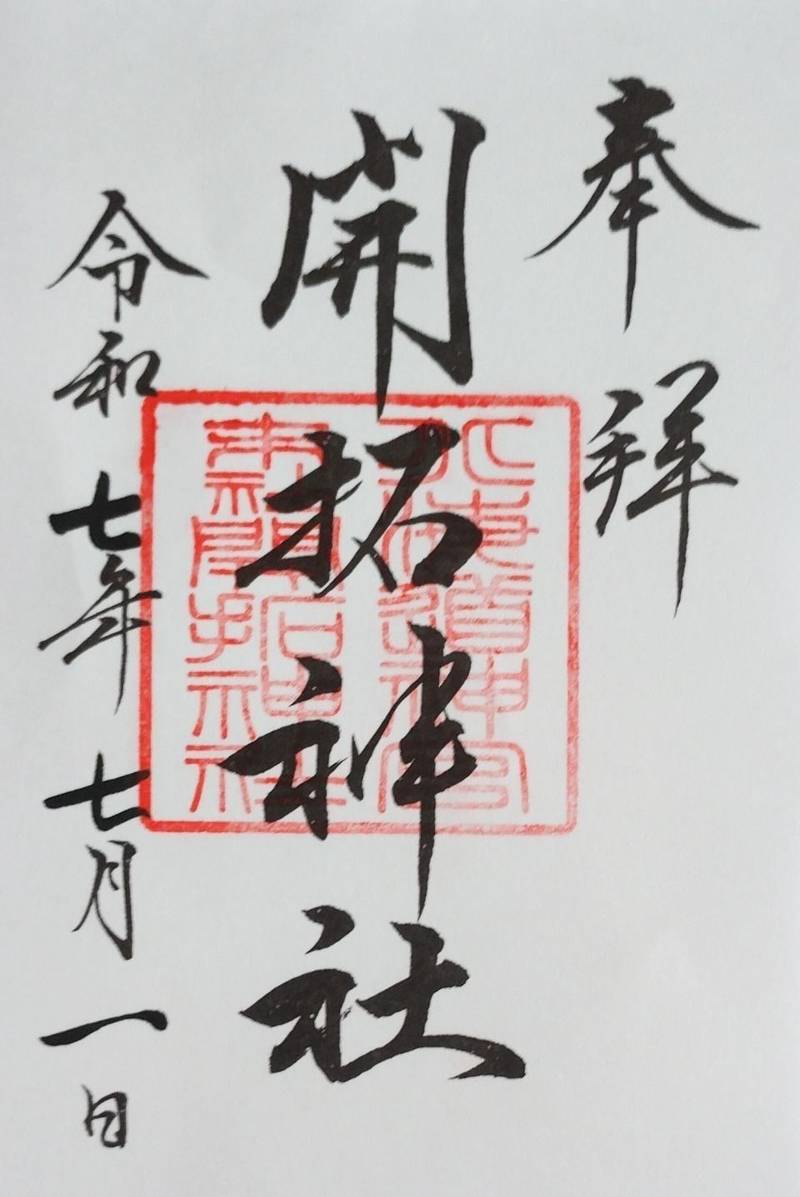 奉拜
開拓神社
令和七年七月一日
北海道神宮
末社開拓神社